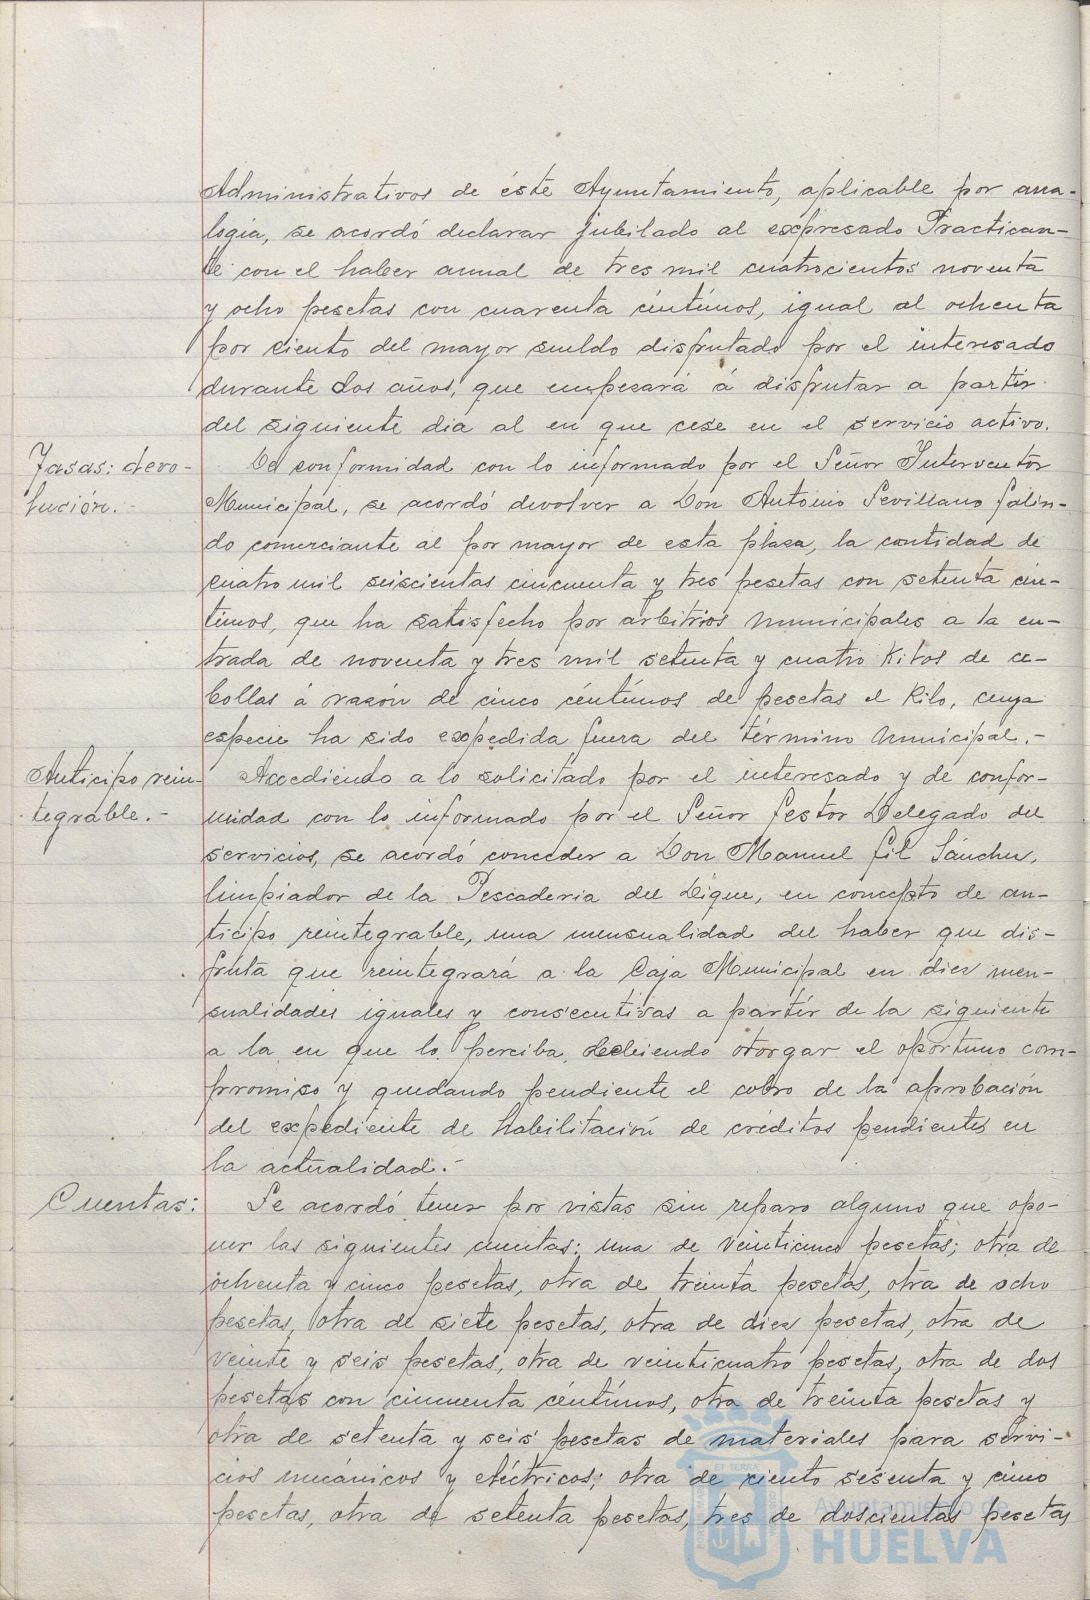 Administrativos de éste Ayuntamiento, aplicable por ana-
logia, se acordó declarar jubilado al expresado Practican-
te con el haber anual de tres mil cuatrocientos noventa
y ocho pesetas con cuarenta céntimos, igual al ochenta
por ciento del mayor sueldo disfrutado por el interesado
durante dos años, que empesará á disfrutar a partir
del siguiente dia al en que cese en el servicio activo.
Tasas: devo-
lución.-
De conformidad con lo informado por el Señor Interventor
Municipal, se acordó devolver a Don Antonio Sevillano Galin-
do comerciante al por mayor de esta plaza, la cantidad de
cuatro mil seiscientas cincuenta y tres pesetas con setenta cén-
timos, que ha satisfecho por arbitrios municipales a la en-
trada de noventa y tres mil setenta y cuatro kilos de ce-
bollas á razón de cinco céntimos de pesetas el kilo, cuya
especie ha sido expedida fuera del término municipal.-
Anticipo rein-
tegrable.-
Accediendo a lo solicitado por el interesado y de confor-
midad con lo informado por el Señor Gestor Delegado del
servicios, se acordó conceder a Don Manuel Gil Sánchez,
limpiador de la Pescaderia del Dique, en concepto de an-
ticipo reintegrable, una mensualidad del haber que dis-
fruta que reintegrará a la Caja Municipal en diez men-
sualidades iguales y consecutivas a partír de la siguiente
a la en que lo perciba, debiendo otorgar el oportuno com-
promiso y quedando pendiente el cobro de la aprobación
del expediente de habilitación de créditos pendientes en
la actualidad.-
Cuentas:
Se acordó tener por vistas sin reparo alguno que opo-
ner las siguientes cuentas: una de veinticinco pesetas; otra de
ochenta y cinco pesetas, otra de treinta pesetas, otra de ocho
pesetas, otra de siete pesetas, otra de diez pesetas, otra de
veinte y seis pesetas, otra de veinticuatro pesetas, otra de dos
pesetas con cincuenta céntimos, otra de treinta pesetas y
otra de setenta y seis pesetas de materiales para servi-
cios mecánicos y eléctricos; otra de ciento sesenta y cinco
pesetas, otra de setenta pesetas, tres de doscientas pesetas
Ayuntamiento de
HUELVA